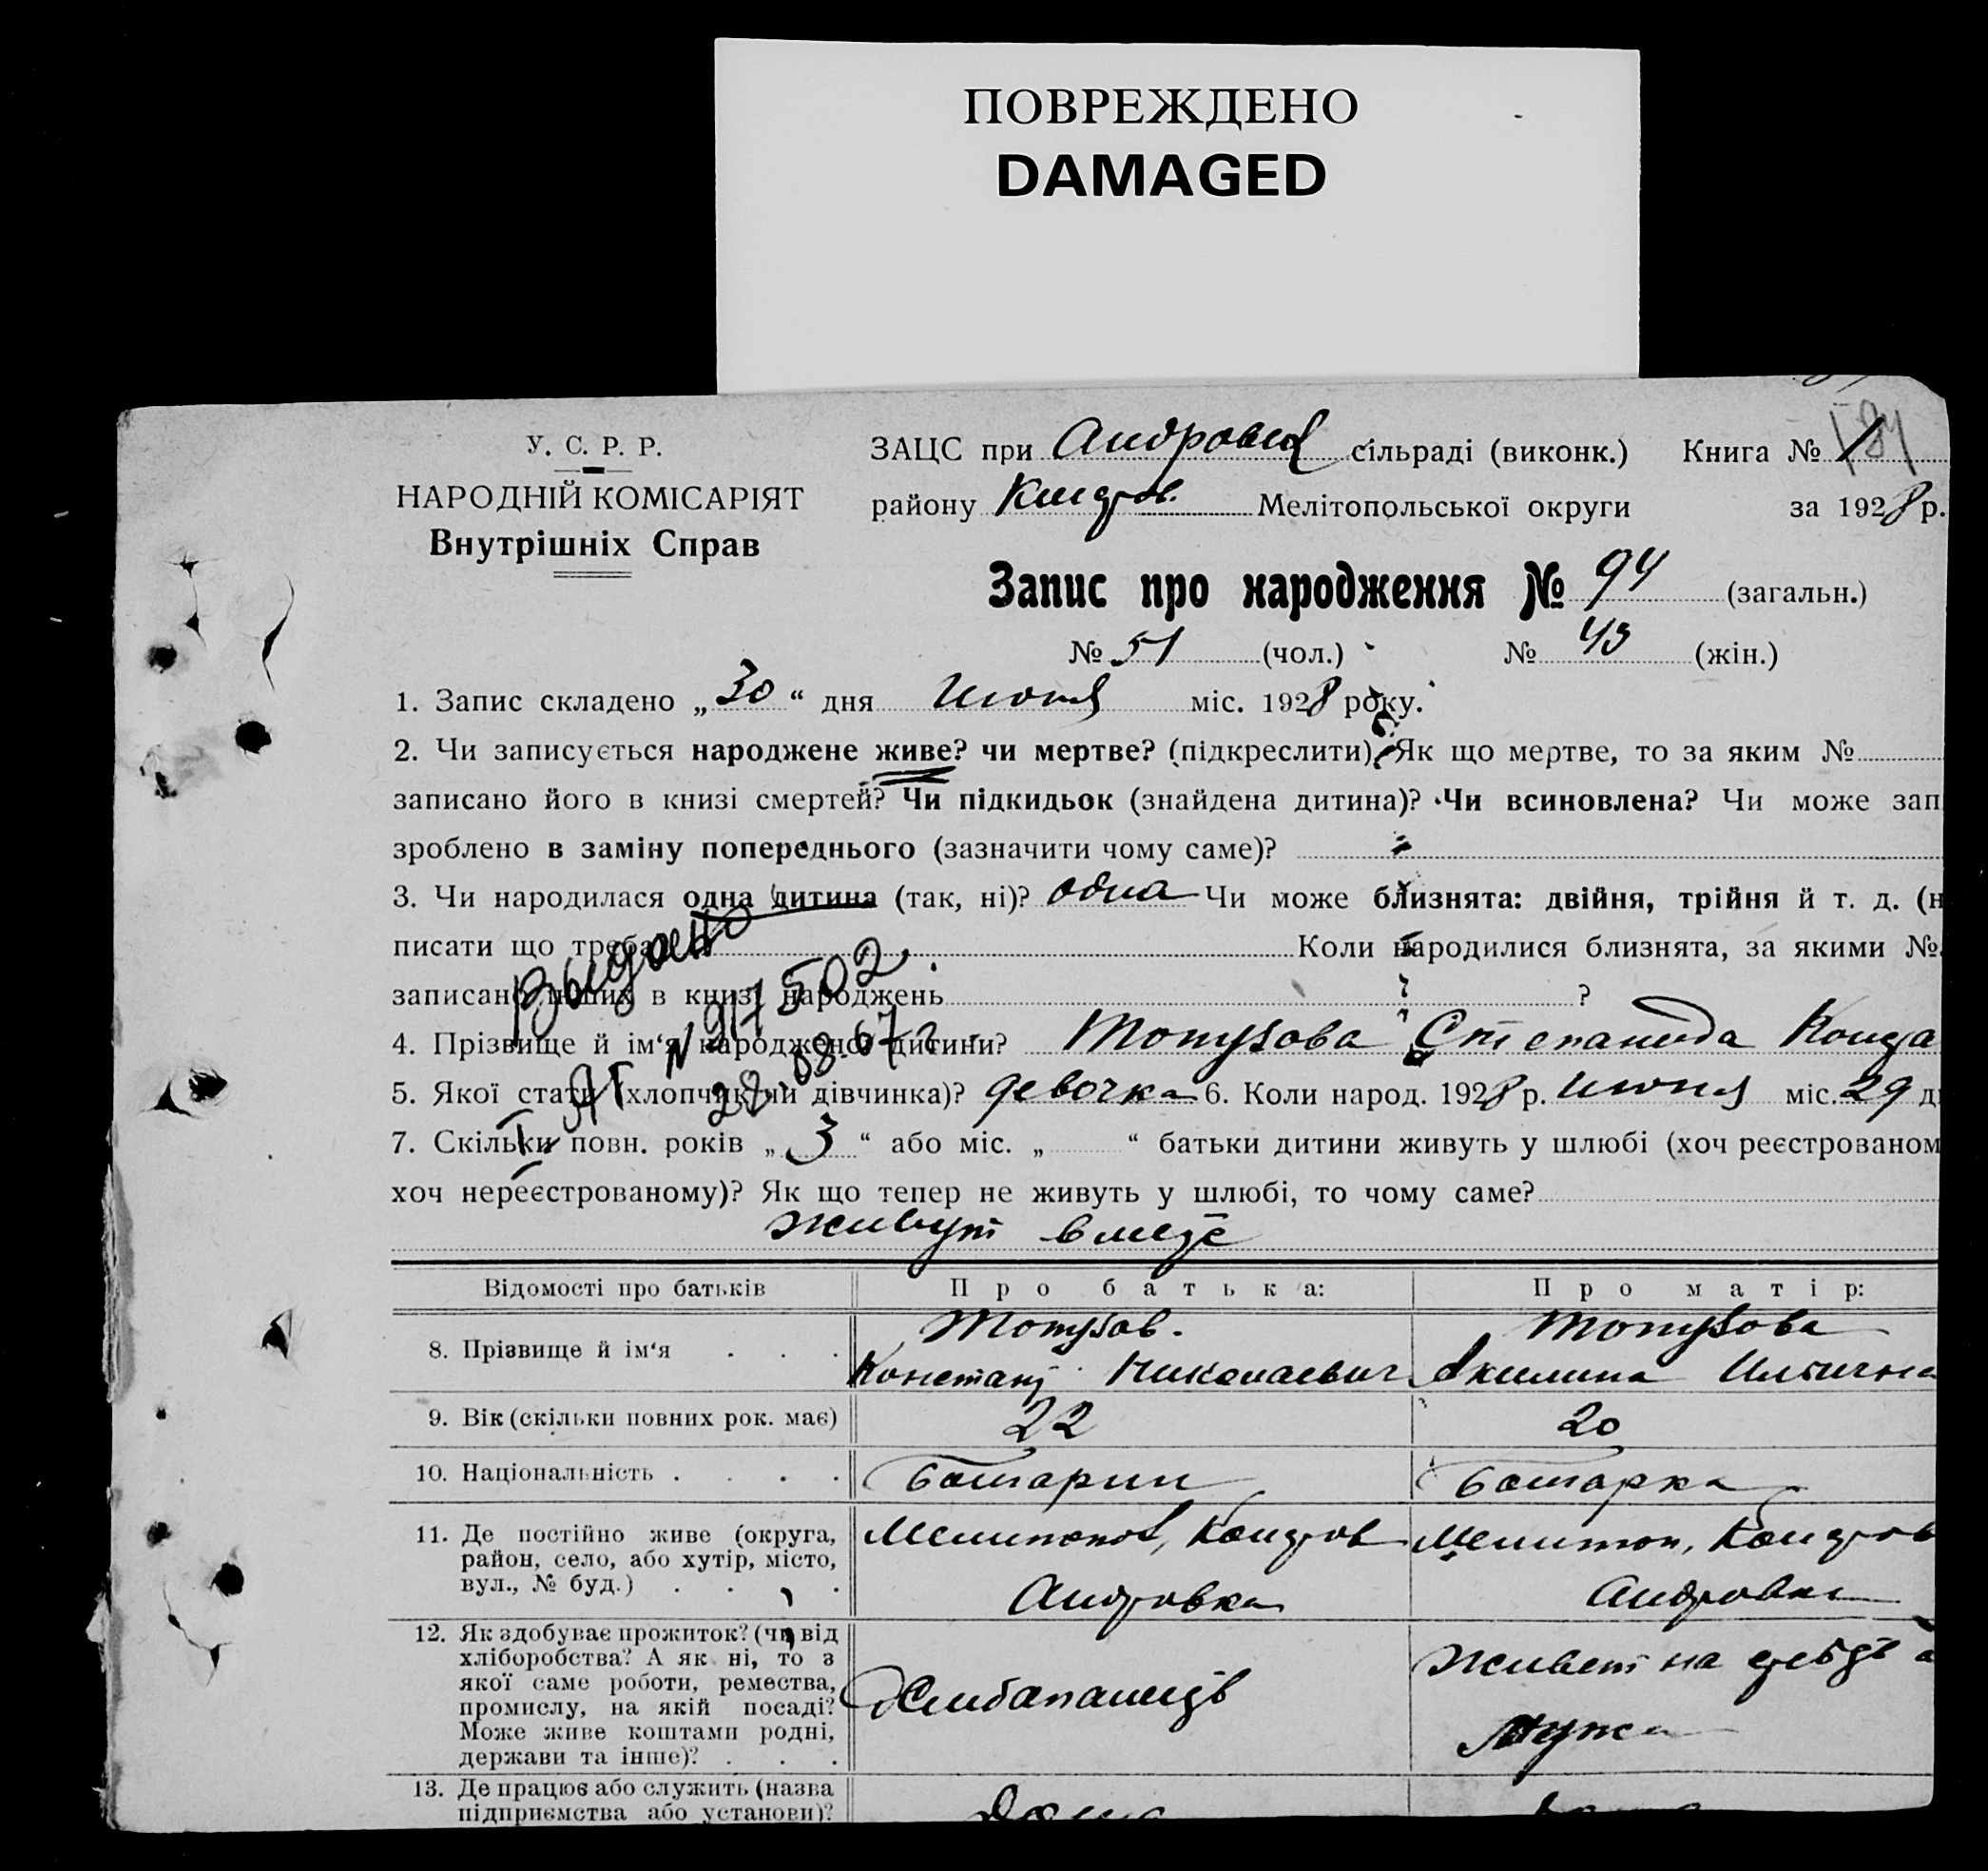 ПОВРЕЖДЕНО
DAMAGED
У. С. Р. Р.
НАРОДНІЙ КОМІСАРІЯТ
Внутрішніх Справ
ЗАЦС при Андровск сільраді (виконк.) Книга № 1
району Кндров. Мелітопольської округи за 1928 р.
Запис про народження № 94 (загальн.)
№ 51 (чол.) № 43 (жін.)
1. Запис складено „30“ дня Июня міс. 1928 року.
2. Чи записується народжене живе? чи мертве? (підкреслити). Як що мертве, то за яким №
записано його в книзі смертей? Чи підкидьок (знайдена дитина)? Чи всиновлена? Чи може зап
зроблено в заміну попереднього (зазначити чому саме)?
3. Чи народилася одна дитина (так, ні)? одна Чи може близнята: двійня, трійня й т. д. (н
писати що треба) Коли народилися близнята, за якими №
записано інших в книзі народжень ?
4. Прізвище й ім‘я народженої дитини? Топузова Степанида Конда
5. Якої статі (хлопчик чи дівчинка)? девочка 6. Коли народ. 1928 р. Июня міс. 29 д
7. Скільки повн. років „3“ або міс. „ “ батьки дитини живуть у шлюбі (хоч реєстрованом
хоч нереєстрованому)? Як що тепер не живуть у шлюбі, то чому саме?
живут вместе
Выдано
№ 917502
28.08.67 г.
Відомості про батьків Про батька: Про матір:
8. Прізвище й ім‘я . . . Топузов. Топузова
Констант Николаевич Акилина Ильична
9. Вік (скільки повних рок. має) 22 20
10. Національність . . . . болгарин болгарка
11. Де постійно живе (округа,
район, село, або хутір, місто,
вул., № буд.) . . . .
Мелитопол, Кондров
Андровка
Мелитоп, Кондров
Андровка
12. Як здобуває прожиток? (чи від
хліборобства? А як ні, то з
якої саме роботи, ремества,
промислу, на якій посаді?
Може живе коштами родні,
держави та інше)? . . .
Живет на
мужа
13. Де працює або служить (назва
підприємства або установи)?